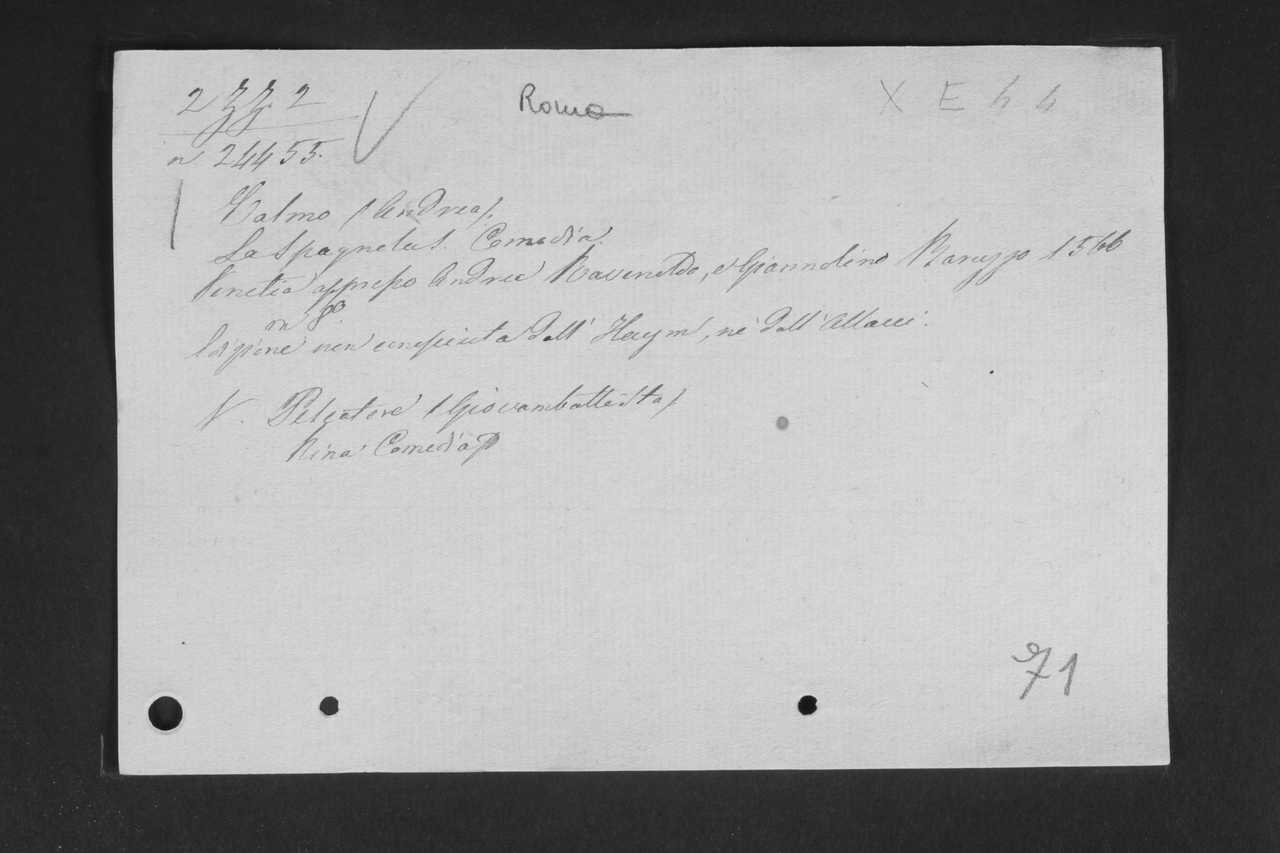 2 77 2
Roma
X E 4 4
n 24455.
Calmo (Andrea).
La Spagnolas. Comedia.
Venetia appresso Andrea Ravenoldo, e Giannolino Baruzzo 1566
in 8º.
Edizione non conosciuta dall' Haym, nè dall' Allacci.
V. Pescatore (Giovambattista)
Nina Comedia
71